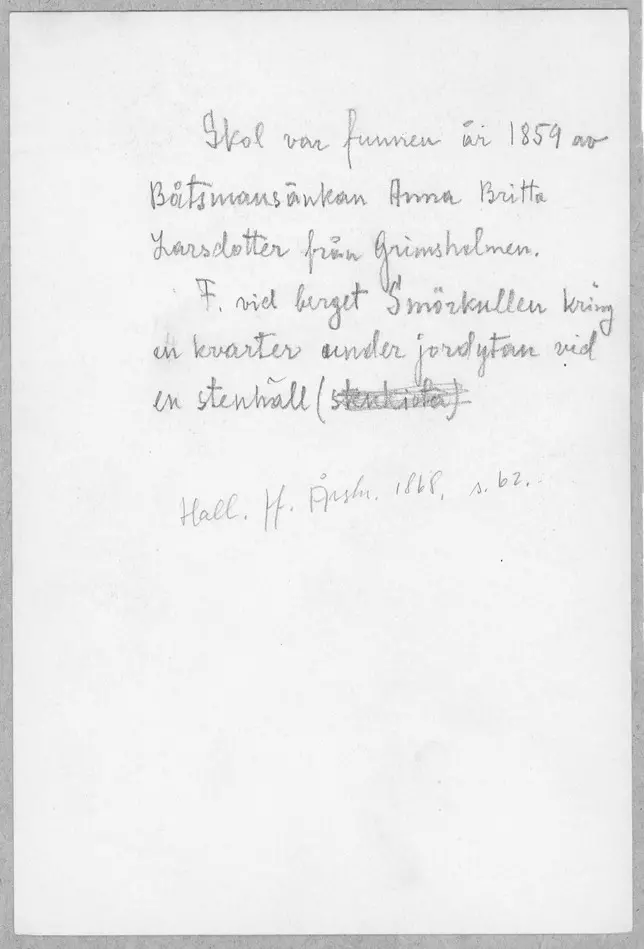 Skol var funnen år 1859 av
Båtsmansänkan Anna Britta
Larsdotter från Grimsholmen.
F. vid berget Smörkullen kring
en kvarter under jordytan vid
en stenhäll (
Hall. ff. Årsskr. 1868, s. 62.